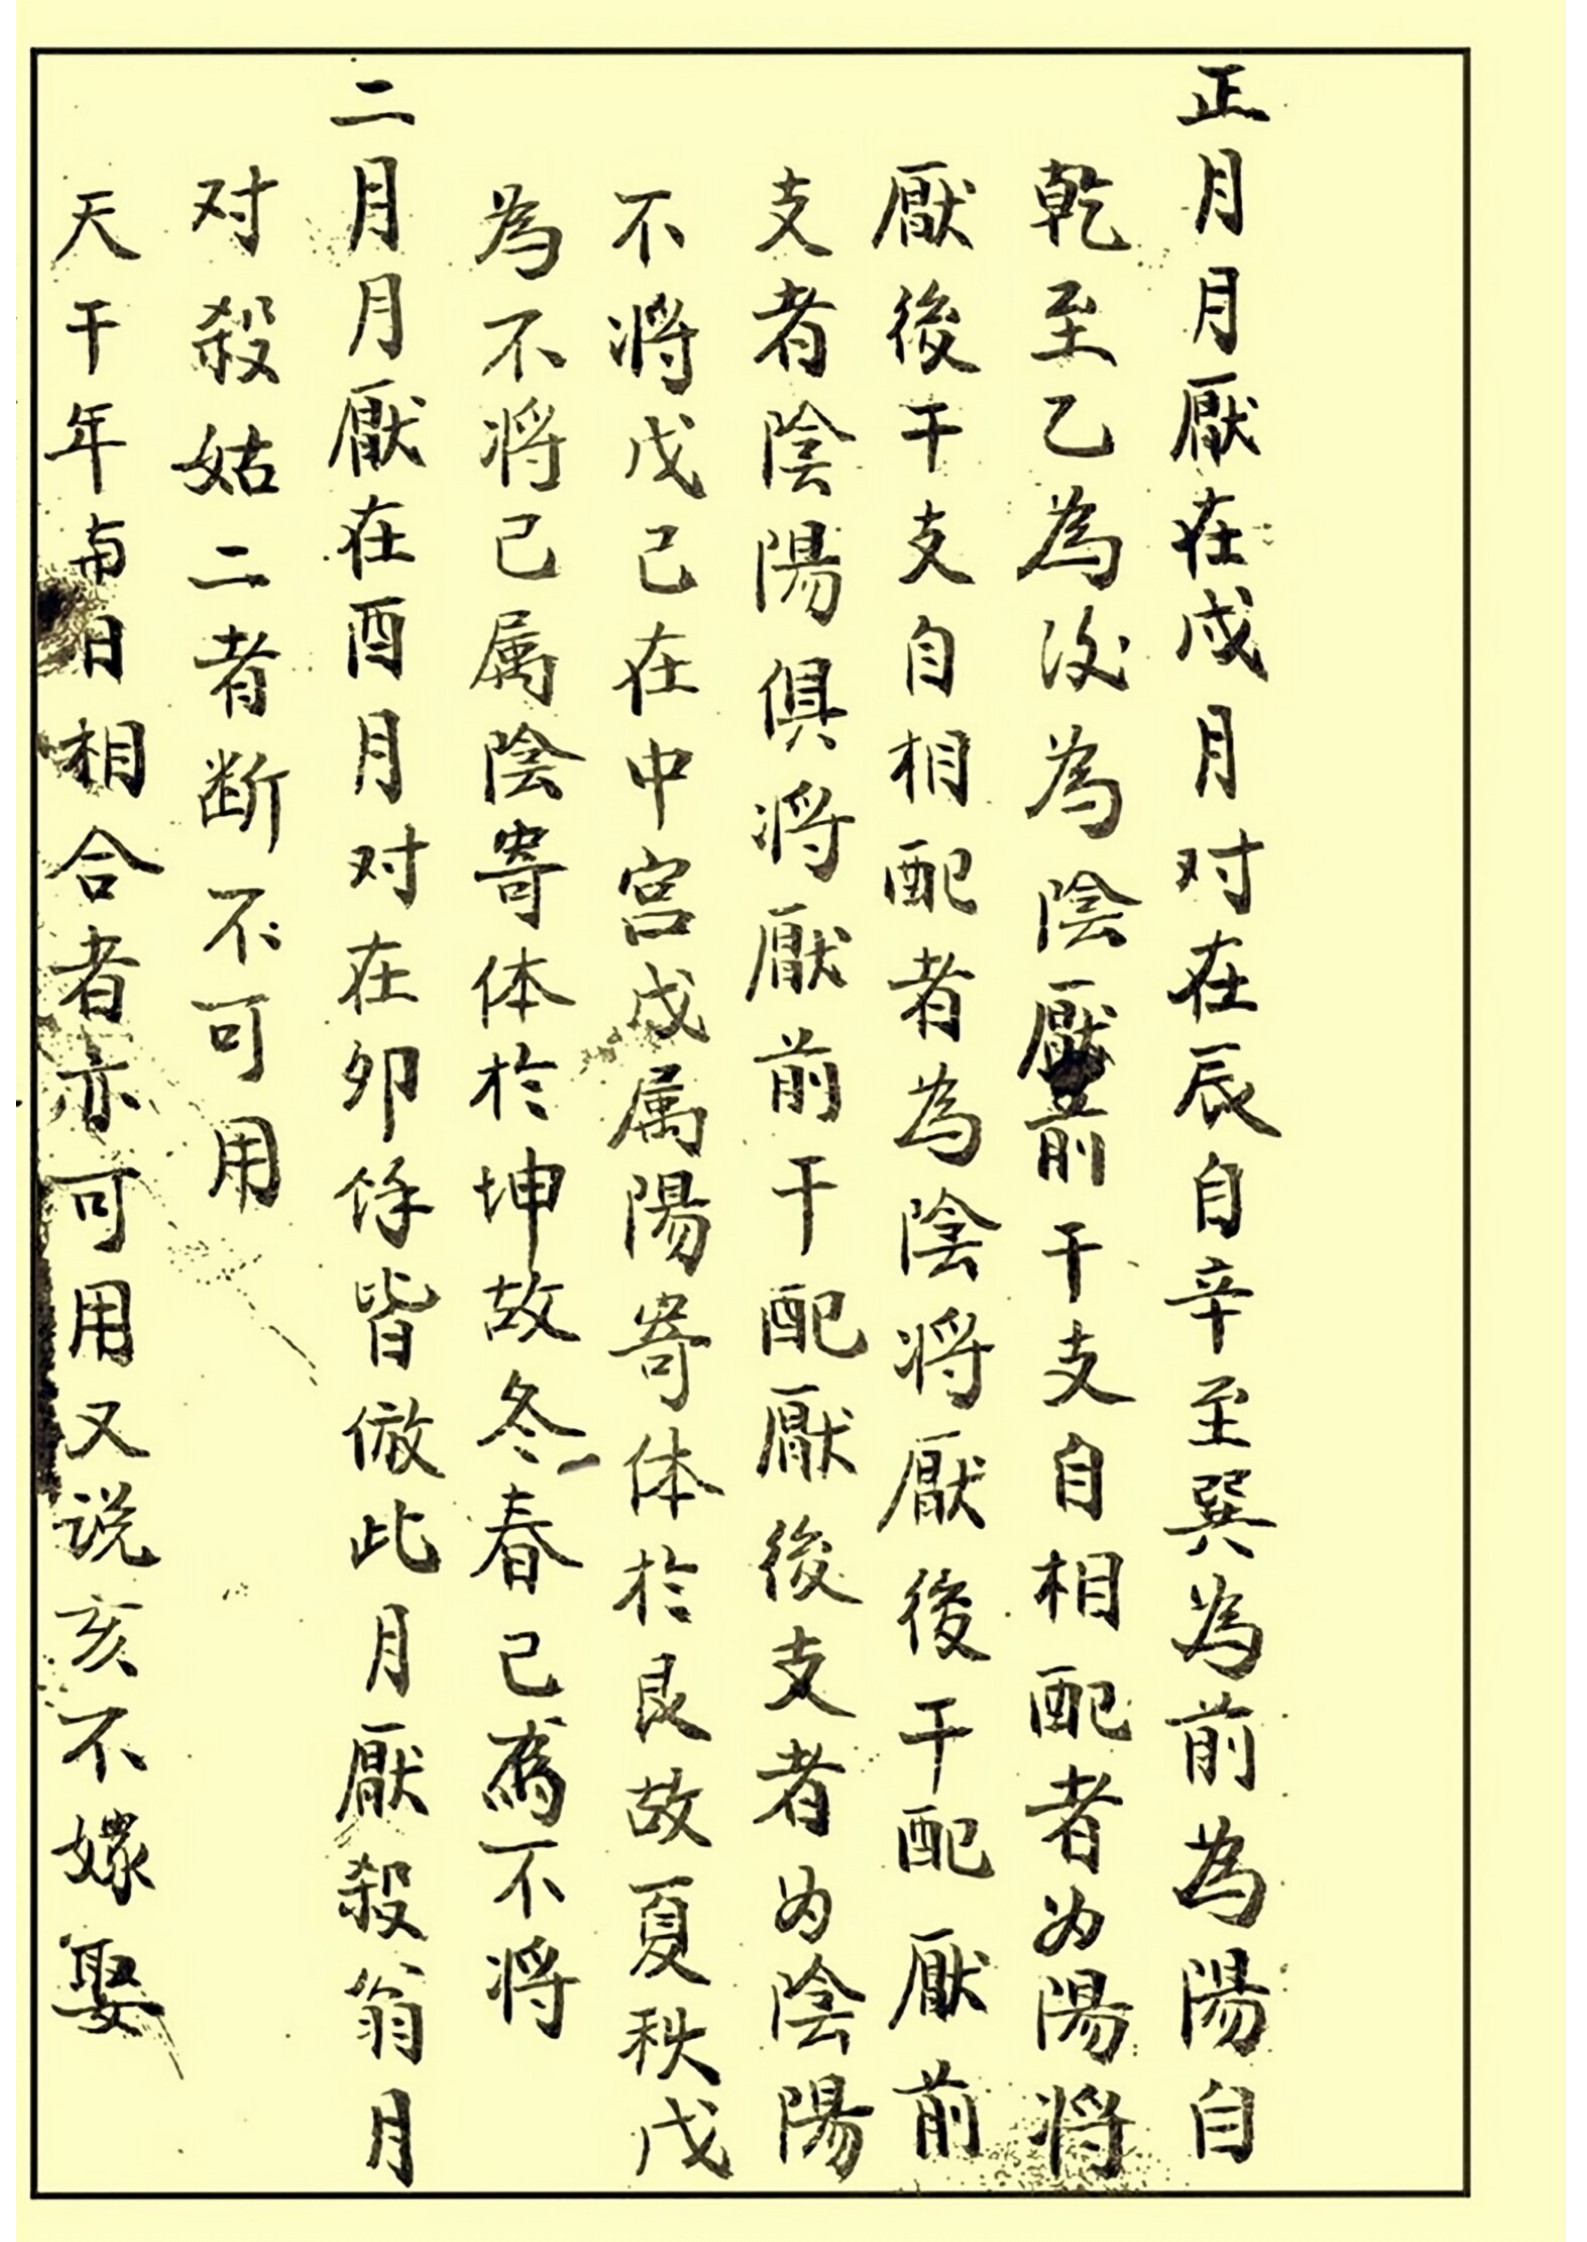 正月月厭在戌月对在辰自辛至巽為前為陽自
乾至乙為後為陰厭前干支自相配者为陽將
厭後干支自相配者為陰将厭後干配厭前
支者陰陽俱将厭前干配厭後支者为陰陽
不将戊己在中宮戊属陽寄体於艮故夏秋戊
為不将己属陰寄体於坤故冬春己為不将
二月月厭在酉月对在卯馀皆倣此月厭殺翁月
对殺姑二者断不可用
天干年与日相合者亦可用又说亥不嫁娶